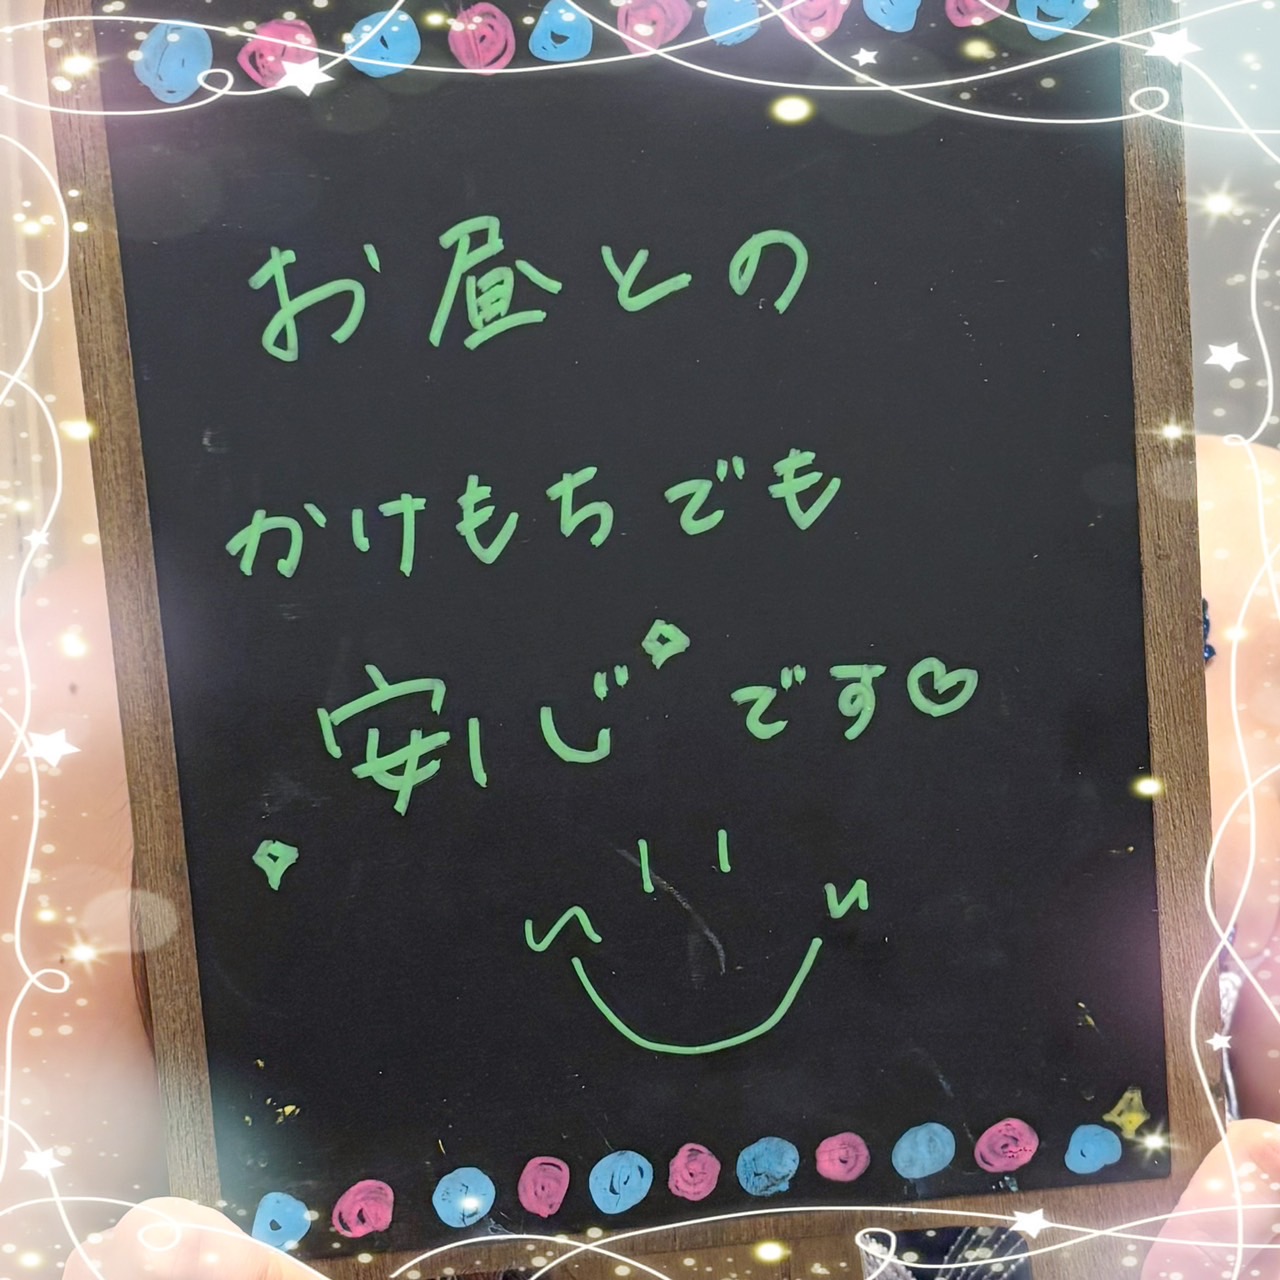 お昼との
かけもちでも
安心です♡